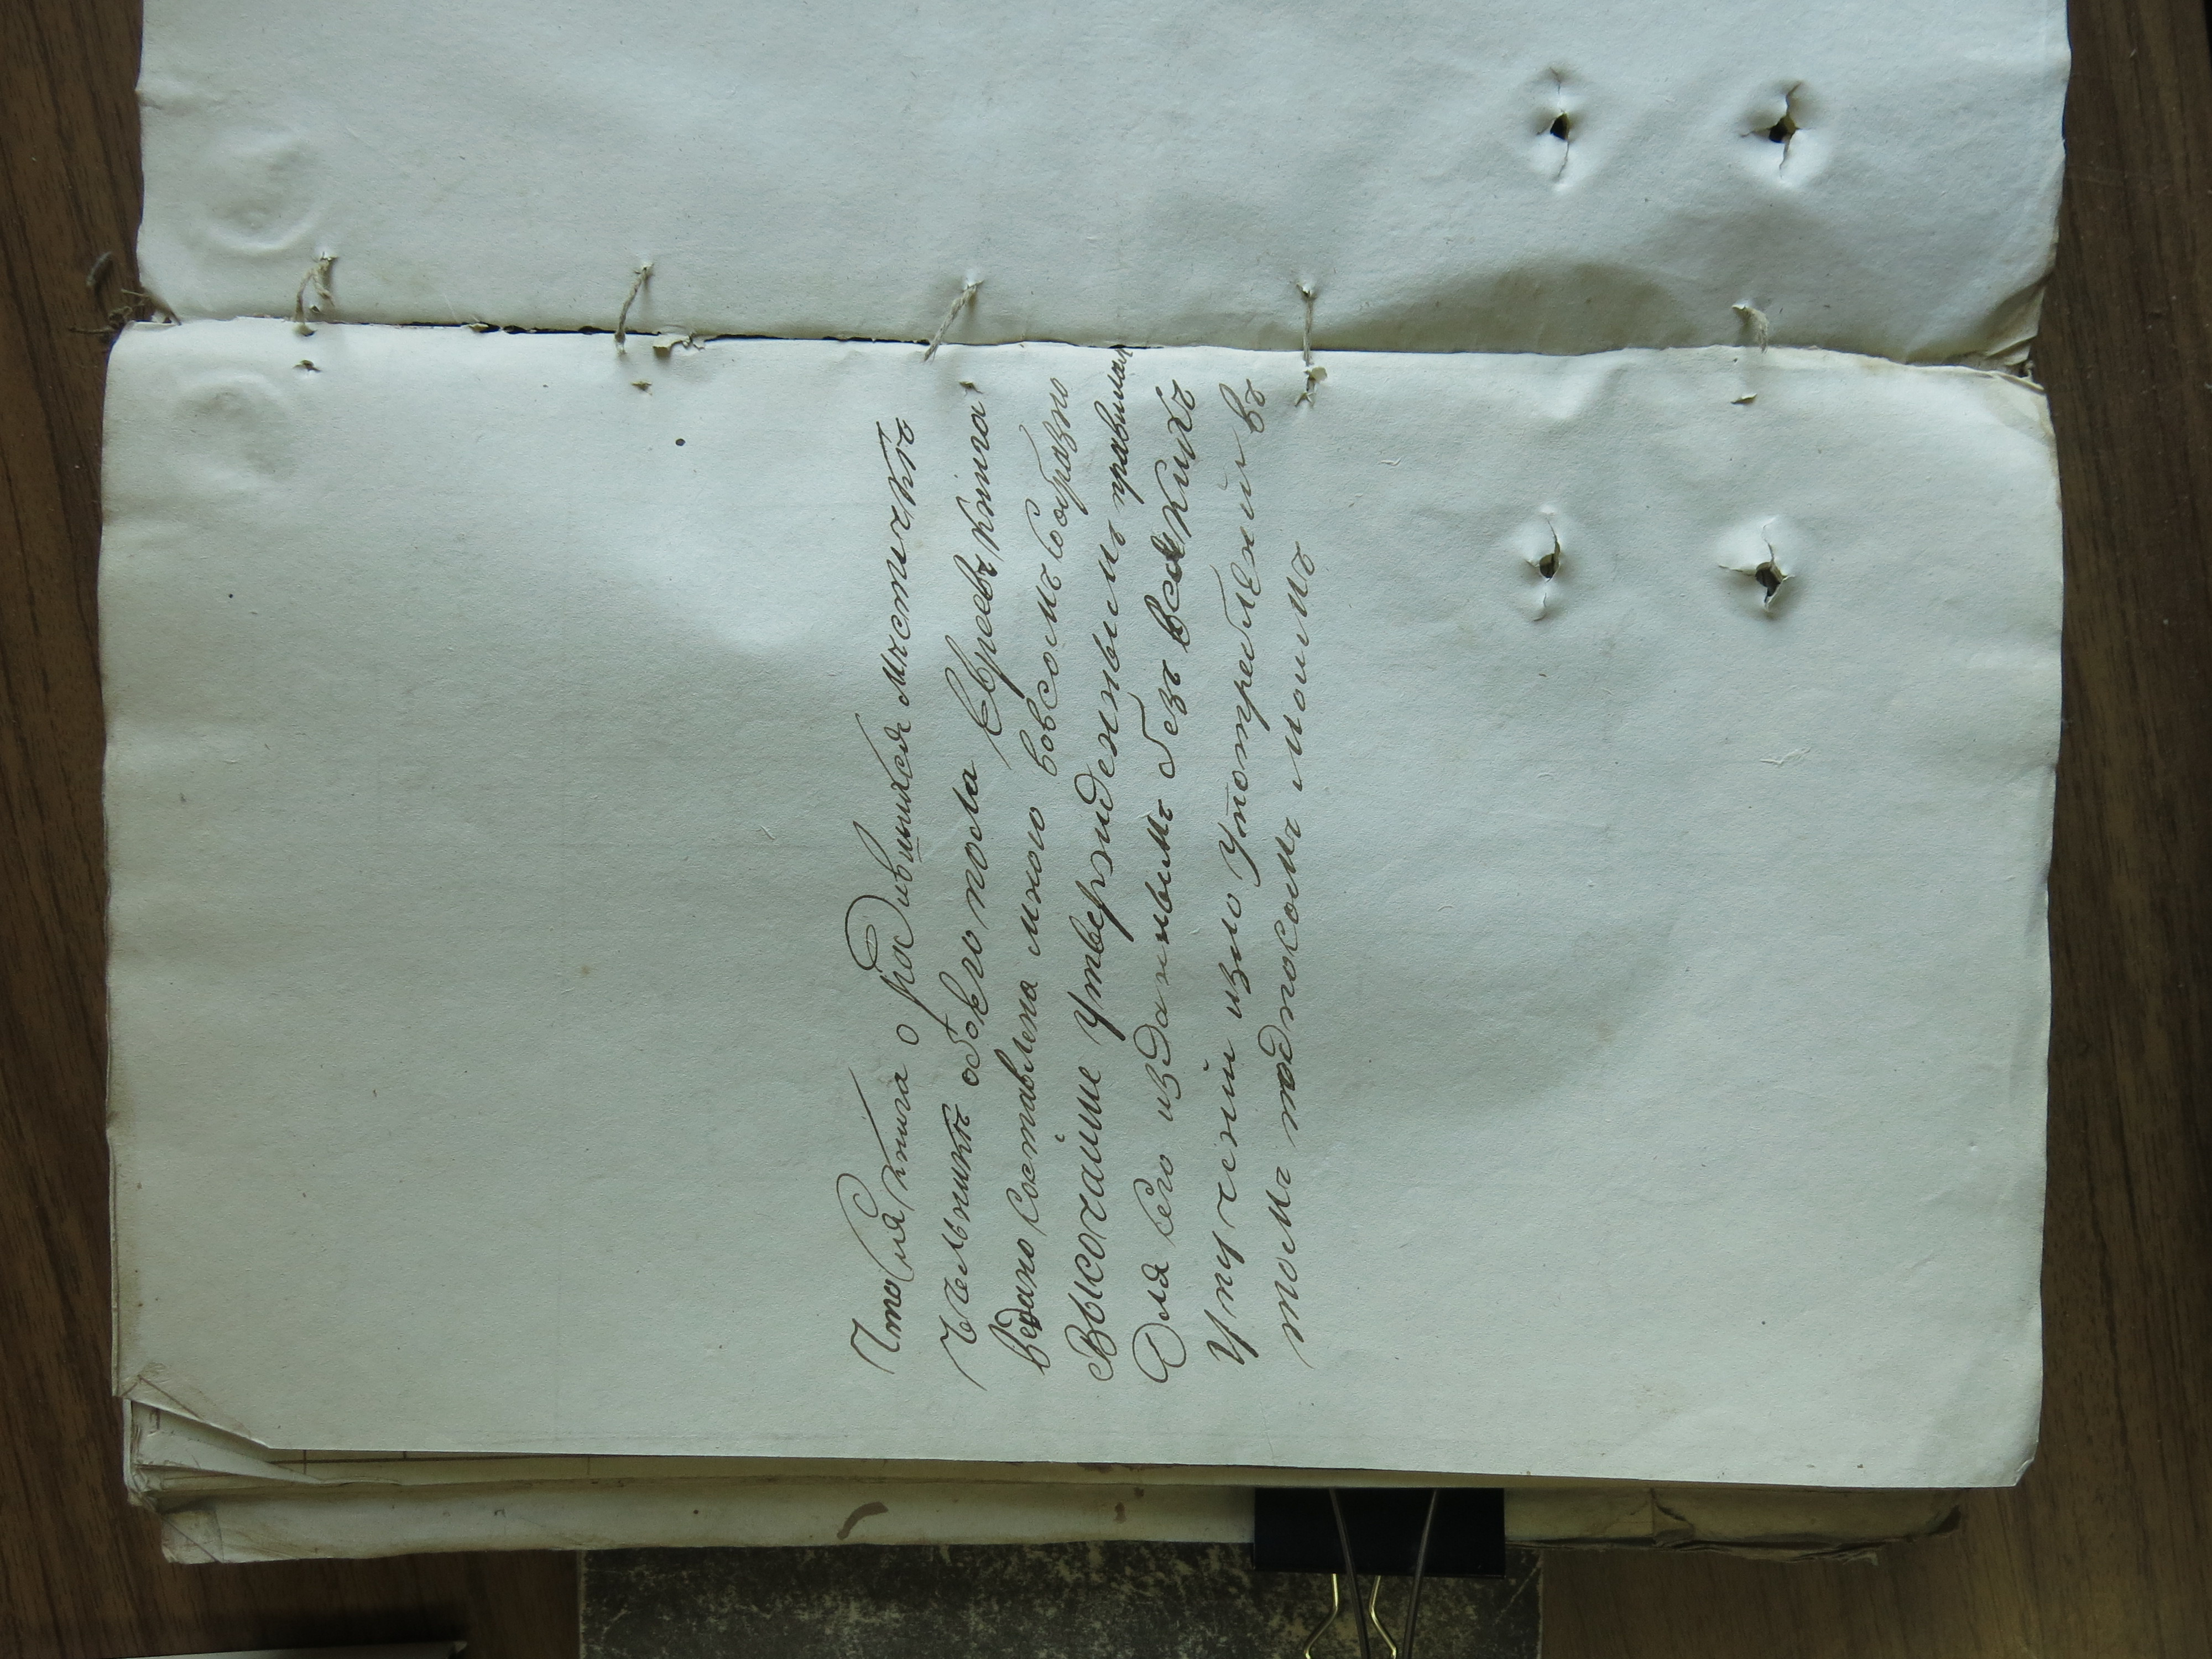 Что Сія книга о родившихся мѣстичкѣ
Чечельникѣ обоего пола Евреевъ книга
ведано Составлена мною вовсомъ Сообразно
Высочайше Утвержиденнымъ правиламъ
Для Сего изданнымъ безъ всякихъ
Упусченіи изло Употребленіи въ
томъ подпосомъ моимъ